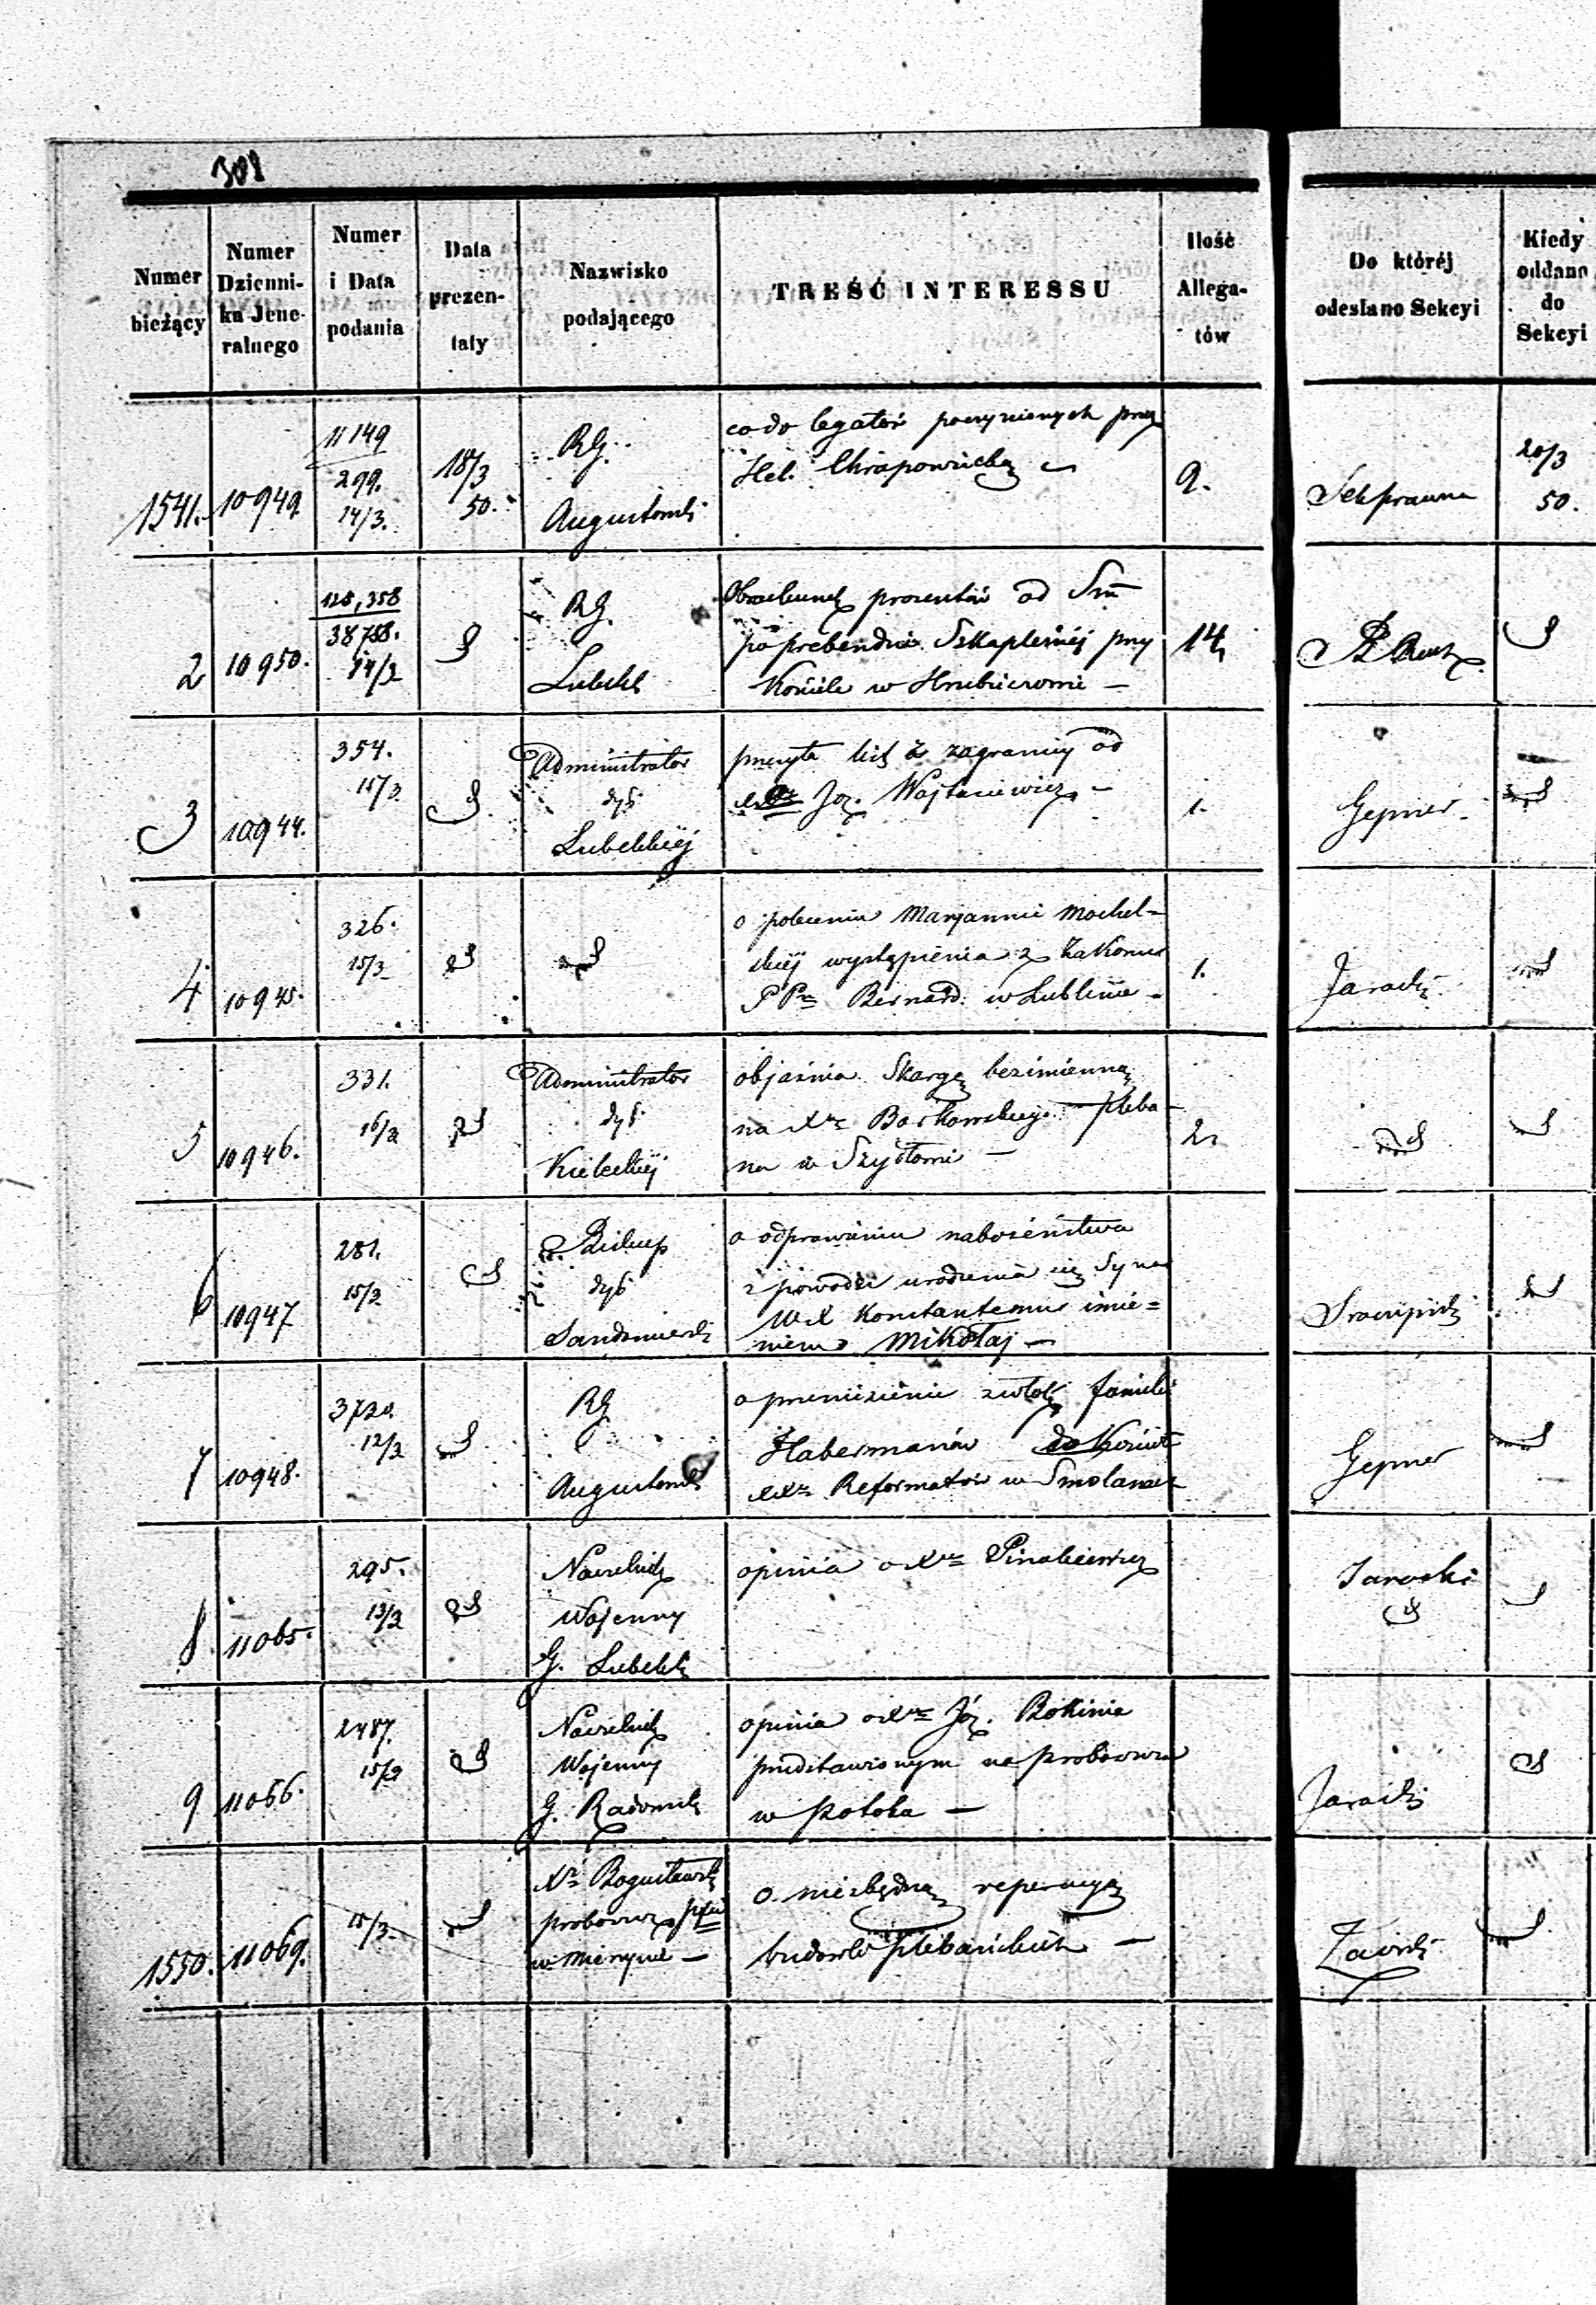 301
Numer bieżący
Numer Dzienni- ka Jene- ralnego
Numer i Data podania
Data prezen- taty
Nazwisko podającego
TREŚĆ INTERESSU
Ilość Allega- tów
Do któréj odesłano Sekcyi
Kiedy oddano do Sekcyi
1541. 10949 11149 299. 14/3. 18/3 50. RG. Augustowski
co do legatów poczynionych przez
Hel. Chrapowicką
9. Sek prawna 20/3 50.
2 10950. 128,358 38758. 14/3 RG. Lubelski
Obrachunek procentów od Sm
po prebendzie Szkaplernéj przy
Kościele w Hrubieszowie —
14
3 10944. 354. 15/3 Administrator dyś Lubelskiéj
przesyła list z zagranicy od
Joz. Wojtasiewicz —
1. Gepner
4 10945. 326. 15/3
o poleceniu Maryannie Mochel=
skiéj wystąpienia z Zakonu
PPn Bernard. w Lublinie —
1. Jarocki
5 10946. 331. 16/3 Administrator dyś Kieleckiéj
objaśnia Skargę bezimienną
na Xa Borkowskiego pleba-
na w Szydłowie —
2.
6 10947 281. 15/3 Biskup dyś Sandomierski
o odprawieniu nabożeństwa
z powodu urodzenia się Syna
WX Konstantemu imie=
niem Mikołaj —
7 10948. 3720. 12/3 RG Augustowski
o przeniesienie zwłok familii
Habermanów do Kościoła
XXw Reformatów w Smolanach
Gepner
8 11065. 295. 13/3 Naczelnik Wojenny G. Lubelski
opinia o Xu
Jarocki
9 11066. 2487. 15/3 Naczelnik Wojenny G. Radomski
opinia o Xu Józ. Rokinie
przedstawionym na probostwo
w Potoka —
Jarocki
1550. 11069. 15/3 Xa Bogusławski proboszcz w Mierzynie —
o niezbędną reperacyą
budowli plebańskich —